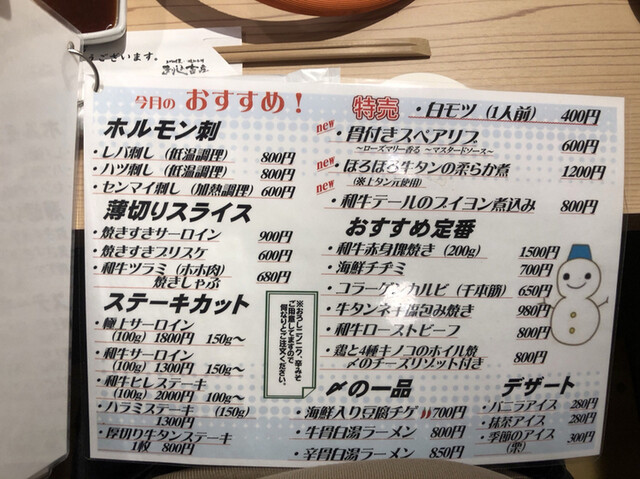 うございます。
今月の おすすめ!
ホルモン刺
・レバ刺し (低温調理) 800円
・ハツ刺し (低温調理) 800円
・センマイ刺し (加熱調理) 600円
薄切りスライス
・焼きすきサーロイン 900円
・焼きすきブリスケ 600円
・和牛ツラミ (ホホ肉) 680円
焼きしゃぶ
ステーキカット
・極上サーロイン
(100g) 1800円 150g〜
・和牛サーロイン
(100g) 1300円 150g〜
・和牛ヒレステーキ
(100g) 2000円 100g〜
・ハラミステーキ (150g)
1300円
・厚切り牛タンステーキ
1枚 800円
※おろしニンニク、辛みそ
ご用意してますので
何なりとご注文ください。
特売 ・白モツ (1人前) 400円
new ・骨付きスペアリブ 600円
〜ローズマリー香る 〜マスタードソース〜
new ・ほろほろ牛タンの柔らか煮 1200円
(※上タン元使用)
new ・和牛テールのブイヨン煮込み 800円
おすすめ定番
・和牛赤身塊焼き (200g) 1500円
・海鮮チヂミ 700円
・コラーゲンカルビ (千本筋) 650円
・牛タンネギ塩包み焼き 980円
・和牛ローストビーフ 800円
・鶏と4種キノコのホイル焼
〆のチーズリゾット付き 800円
〆の一品
・海鮮入り豆腐チゲ 700円
・牛骨白湯ラーメン 800円
・辛骨白湯ラーメン 850円
デザート
・バニラアイス 280円
・抹茶アイス 280円
・季節のアイス 300円
(栗)